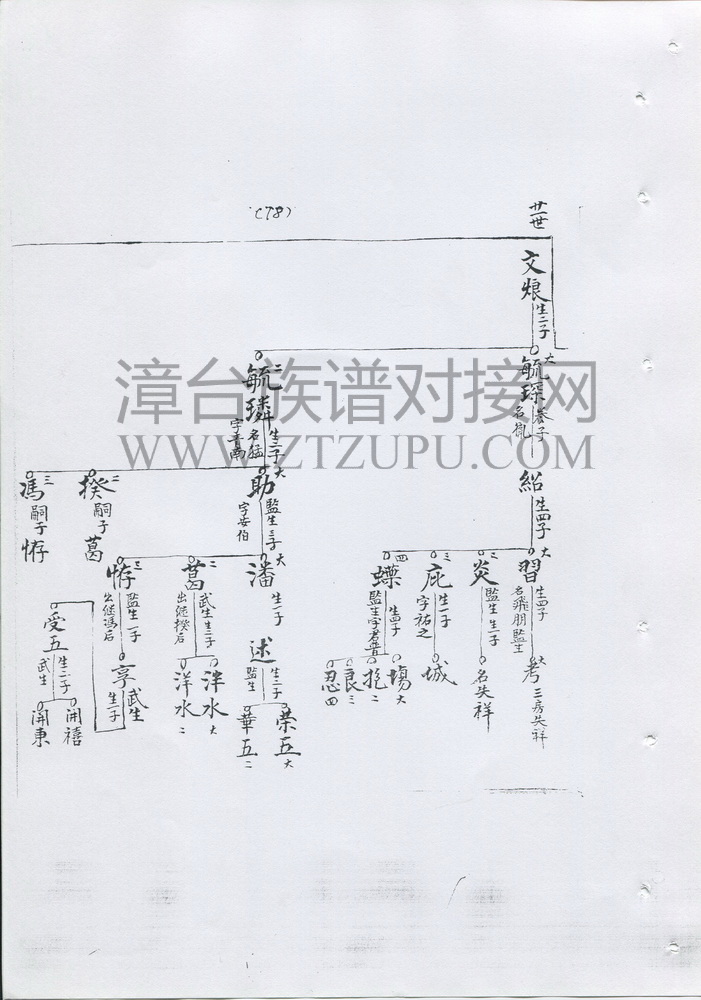 (78)
廿世
文烺
生二子
大
毓琛
養子
二
毓璘
生二子
名猛
字青南
紹
生四子
大
助
監生
三子
字安伯
二
揆
嗣子
葛
三
馮
嗣子
恃
大
習
生四子
名飛朋監生
二
炎
監生
生一子
三
庇
生一子
字祐之
四
蠂
生四子
監生字君晋
大
潘
生一子
二
葛
武生
生二子
出继揆后
三
恃
監生
一子
出继馮后
考
三房失祥
名失祥
城
場
大
二
良
三
忍
四
述
生二子
監生
泮水
大
洋水
二
享
武生
生一子
受五
生二子
武生
榮五
大
華五
二
開禧
開東
漳台族谱对接网
WWW.ZTZUPU.COM